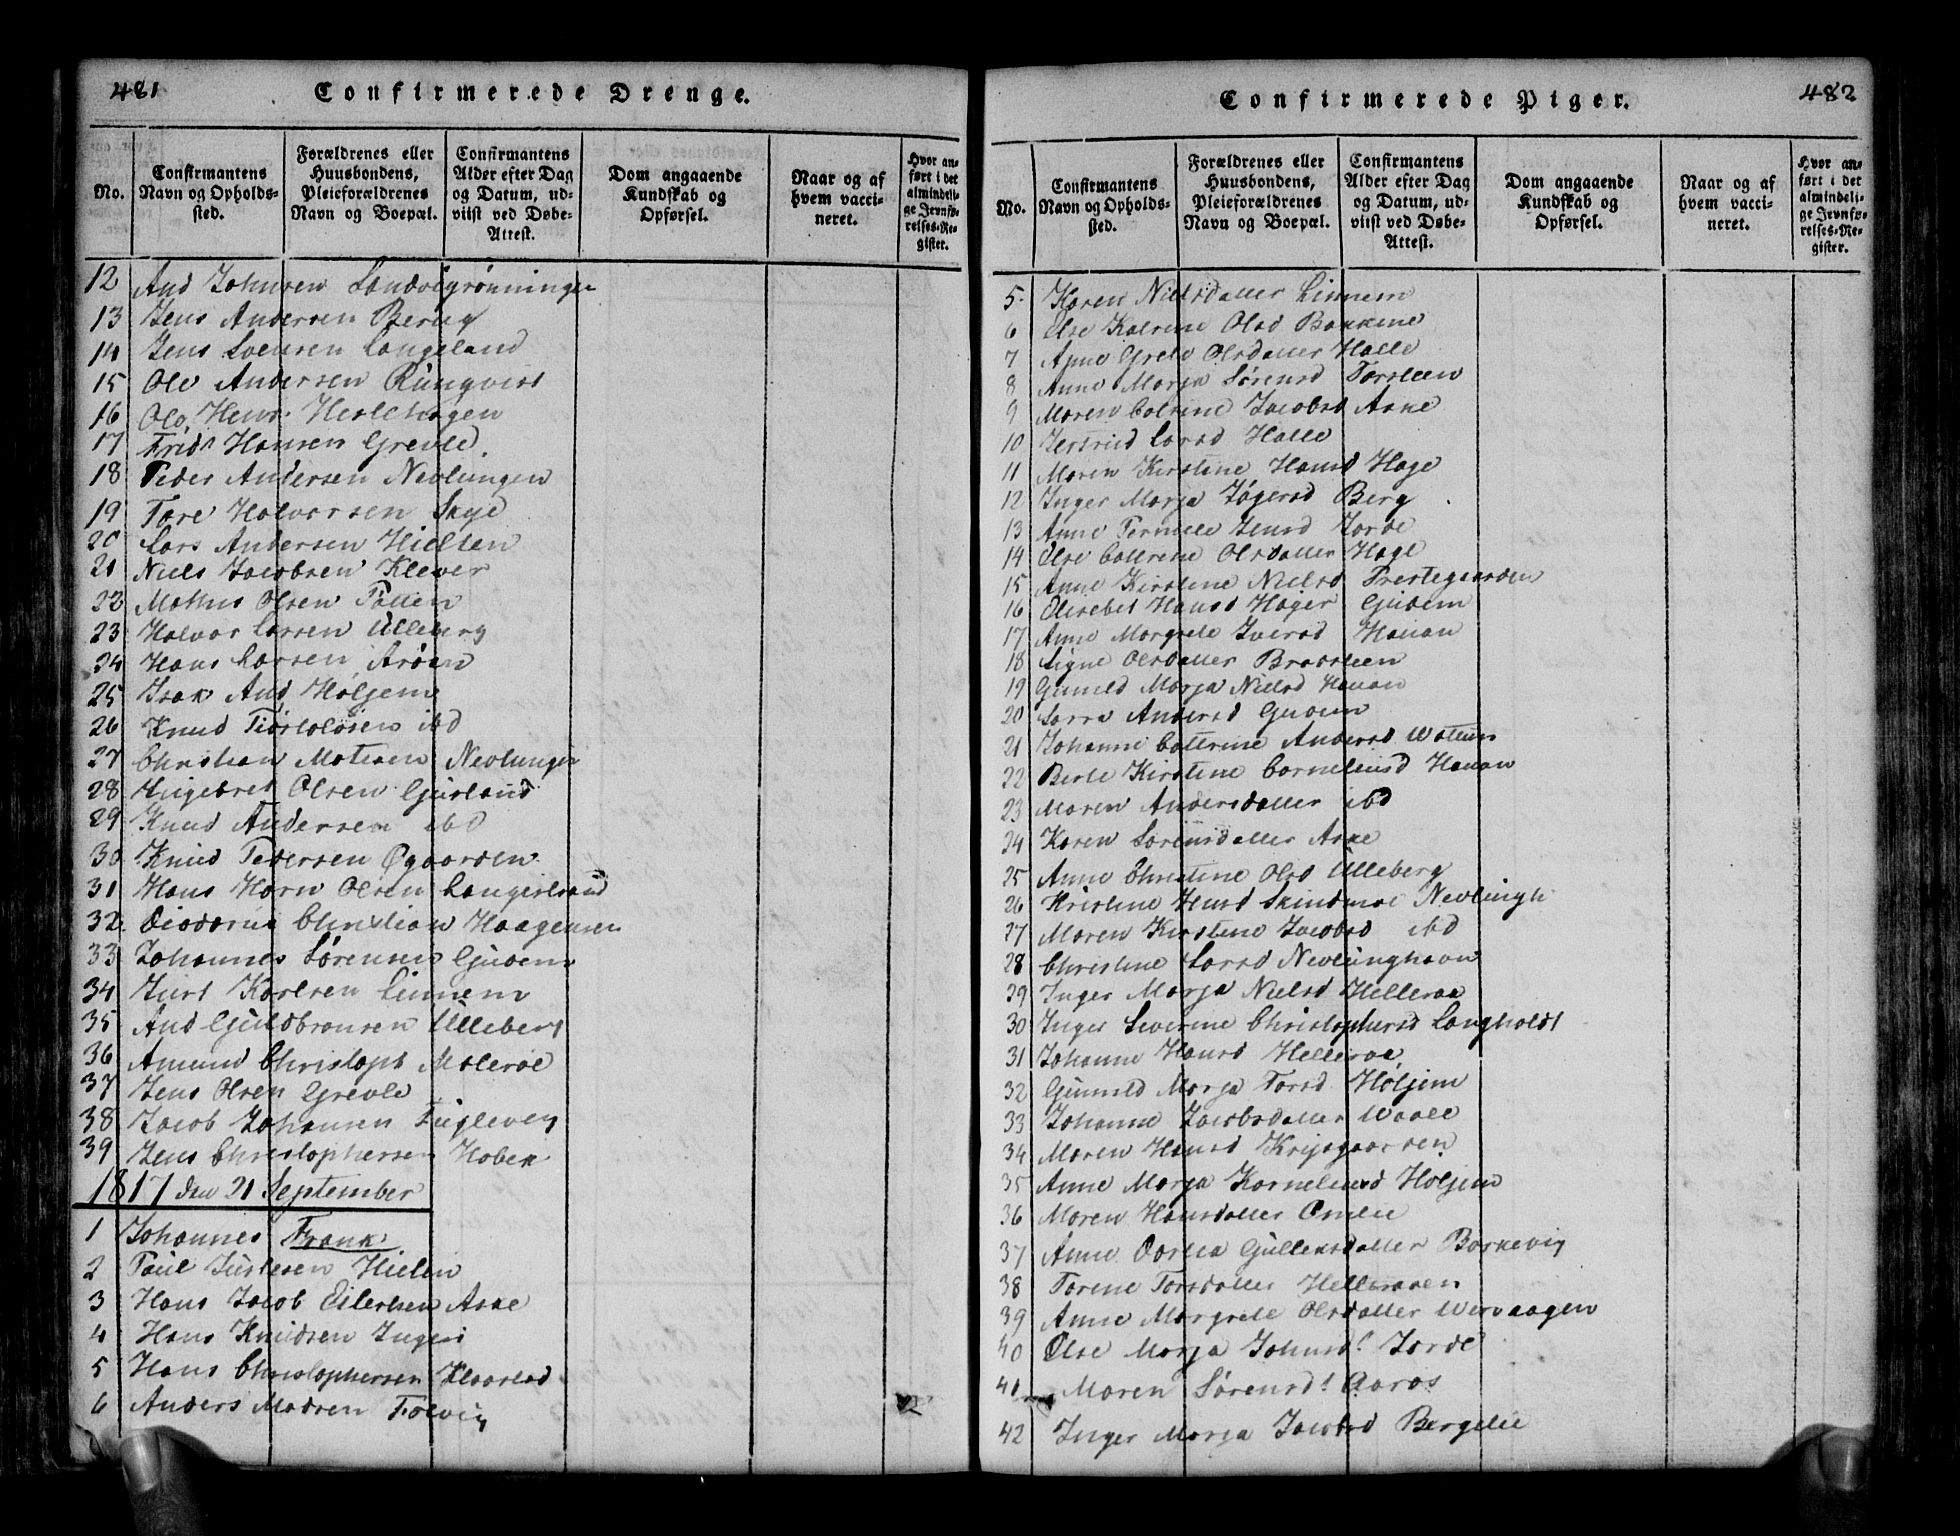 481
Confirmerede Drenge.
No.
Confirmantens Navn og Opholds-sted.
Forældrenes eller Huusbondens, Pleieforældrenes Navn og Boepæl.
Confirmantens Alder efter Dag og Datum, ud-viist ved Døbe-Attest.
Dom angaaende Kundskab og Opførsel.
Naar og af hvem vacci-neret.
Hvor an-ført i det almindeli-ge Jevnfø-relses-Re-gister.
12 And Johnsen Sandvigrönningen
13 Jens Andersen Berug
14 Jens Svensen Langeland
15 Ole Andersen Rungvist
16 Ole Hens
17 Frid Hansen Grevle.
18 Peder Andersen Nevlungen
19 Tore Halvorsen Skye
20 Lars Andersen Hielten
21 Niels Jacobsen Klever
22 Mathis Olsen Pollen
23 Halvor Larsen Ulleberg
24 Hans Larsen Arøen
25 Isak And Høljem
26 Knud ibd
27 Christian Matisen Nevlungen
28 Ingebret Olsen Gjusland
29 Knud Andersen ibd
30 Knud Pedersen Øgaarden
31 Hans Horn Olsen Langestrand
32. Diodorus Christian Haagensen
33 Johannes Sørensen Gudem
34 Just Karlsen Linnem
35 And Guldbransen Ulleberg
36 Amund Christoph Maleröe
37 Jens Olsen Grevle
38 Jacob Johansen Fuglevig
39 Jens Christophersen Hobek
1817 den 21 September
1 Johannes Frank
2 Paul Justesen Hielm
3 Hans Jacob Eilertsen Aske
4 Hans Knudsen
5 Hans Christophersen
6 Anders Madsen Tolvig
482
Confirmerede Piger.
No.
Confirmantens Navn og Opholds-sted.
Forældrenes eller Huusbondens, Pleieforældrenes Navn og Boepæl.
Confirmantens Alder efter Dag og Datum, ud-viist ved Døbe-Attest.
Dom angaaende Kundskab og Opførsel.
Naar og af hvem vacci-neret.
Hvor an-ført i det almindeli-ge Jevnfø-relses-Re-gister.
5. Karen Nielsdatter Linnem
6 Else Katrine Olsd Bakkene
7 Anne Grete Olsdatter Halle
8 Anne Marja Sørensd Torsteen
9 Maren Catrine Jacobsd Aske
10 Jertrud Larsd Halle
11 Maren Kirstine Hansd Hage
12 Inger Marja Jøgersd Berg
13 Anne Pernele Jensd Jorde
14 Else Catrene Olsdatter Hage
15 Anne Kirstine Nielsd Prestegaarden
16 Elisebet Hansd Høger Gudem
17 Anne Margrete Iversd Hauan
18 Signe Olsdatter Bradsteen
19 Gunild Marja Nielsd Hauan
20 Sarra Andersd Gudem
21 Johanne Catrine Andersd
22 Berte Kirstine Corneliusd Hauan
23 Maren Andersdatter ibd
24 Karen Sorensdatter Aske
25 Anne Christine Olsd Ulleberg
26 Kristine Hansd Skindmoe Nevlungh
27 Maren Kirstine Jacobsd ibd
28 Christine Larsd Nevlunghavn
29 Inger Marja Nielsd Helleraa
30 Inger Severine Christophersd Langholdt
31 Johanne Hansd Helleroe
32 Gunild Marja Torsd Høljem
33 Johanne Jacobsdatter Waale
34 Maren Hansd Krysgaarsen
35 Anne Marja Korneliusd Holjem
36 Maren Hansdatter Omlie
37 Anne Dortea Gullensdatter Barkevig
38 Torene Torsdatter Helleraaen
39 Anne Margrete Olsdatter Wervaagen
40 Else Marja Johnsd. Jorde
41 Maren Sørensd. Aaros
42 Inger Marja Jacobsd Bergelie